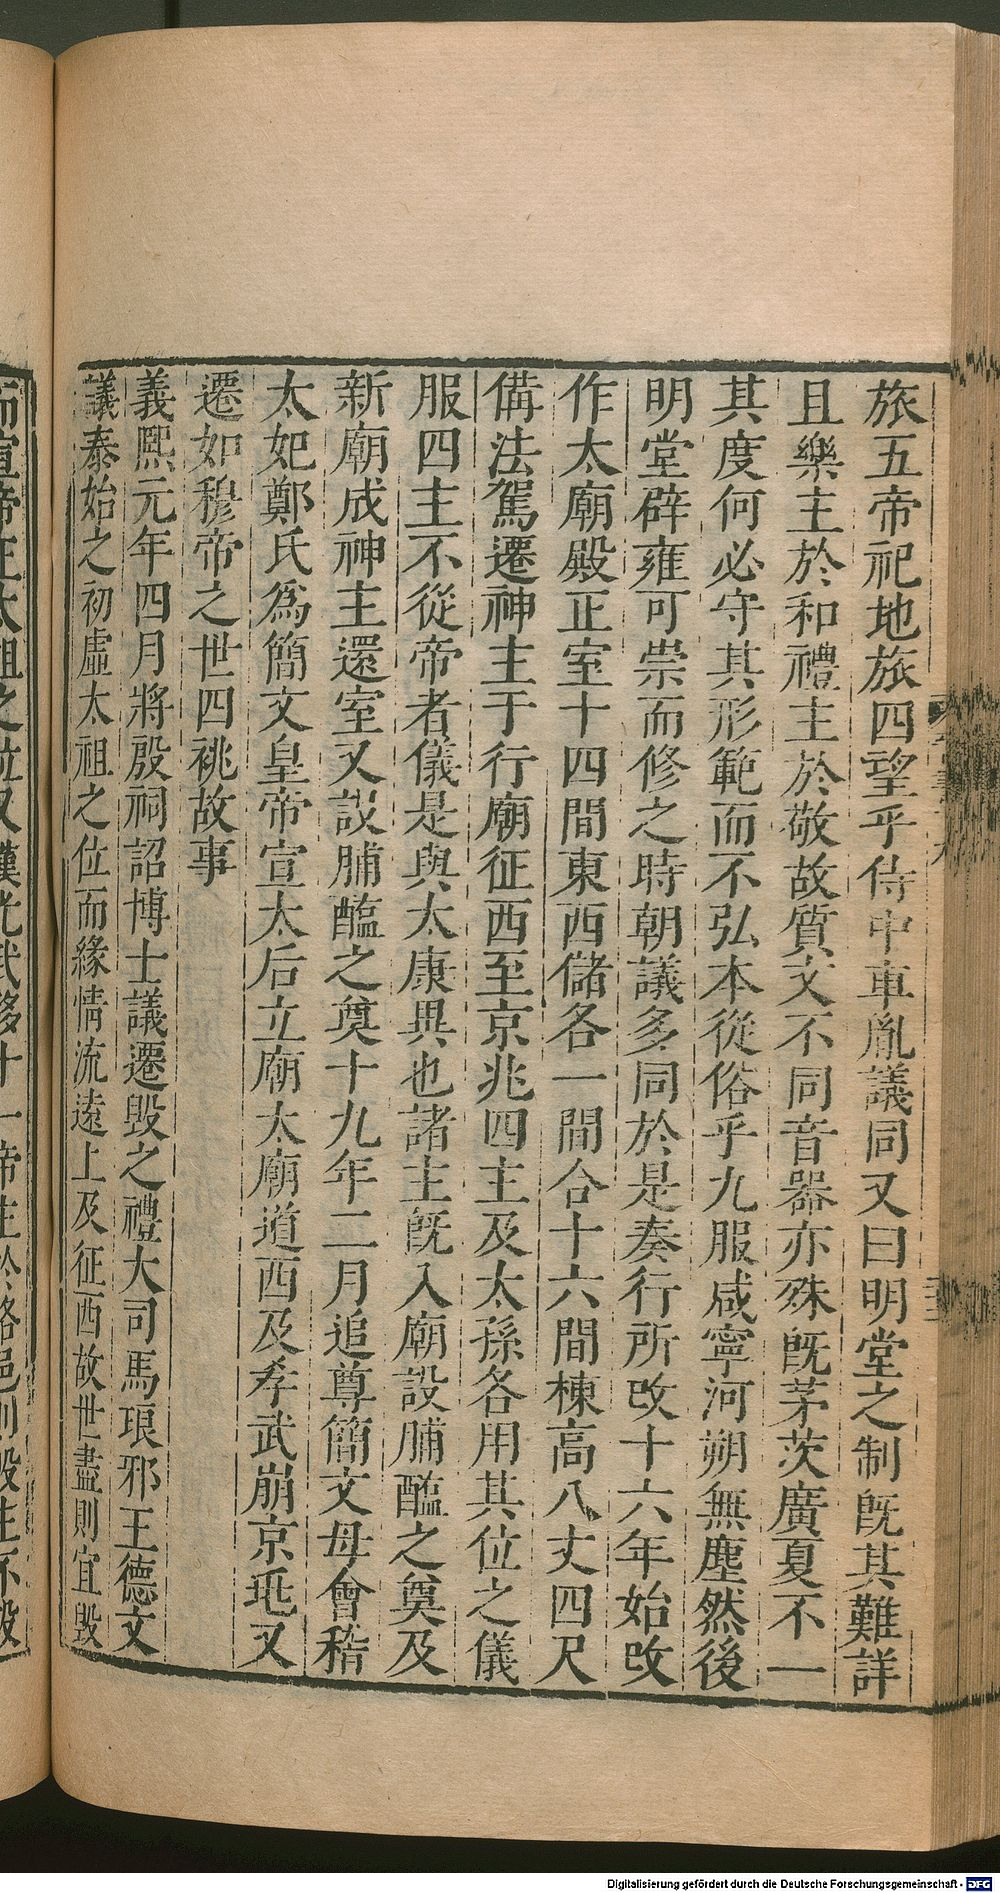 旅五帝祀地旅四望乎侍中車胤議同又曰明堂之制旣其難詳
且樂主於和禮主於敬故質文不同音器亦殊旣茅茨廣夏不一
其度何必守其形範而不弘本從俗乎九服咸寧河朔無塵然後
明堂辟雍可崇而修之時朝議多同於是奏行所改十六年始改
作太廟殿正室十四間東西儲各一間合十六間棟高八丈四尺
備法駕遷神主于行廟征西至京兆四主及太孫各用其位之儀
服四主不從帝者儀是與太康異也諸主旣入廟設脯醢之奠及
新廟成神主還室又設脯醢之奠十九年二月追尊簡文母會稽
太妃鄭氏爲簡文皇帝宣太后立廟太廟道西及孝武崩京兆又
遷如穆帝之世四祧故事
義熙元年四月將殷祠詔博士議遷毀之禮大司馬琅邪王德文
議泰始之初虛太祖之位而緣情流遠上及征西故世盡則宜毀
而宣帝正太祖之位又漢光武移十一帝主於洛邑則毀主不毀
Digitalisierung gefördert durch die Deutsche Forschungsgemeinschaft - DFG